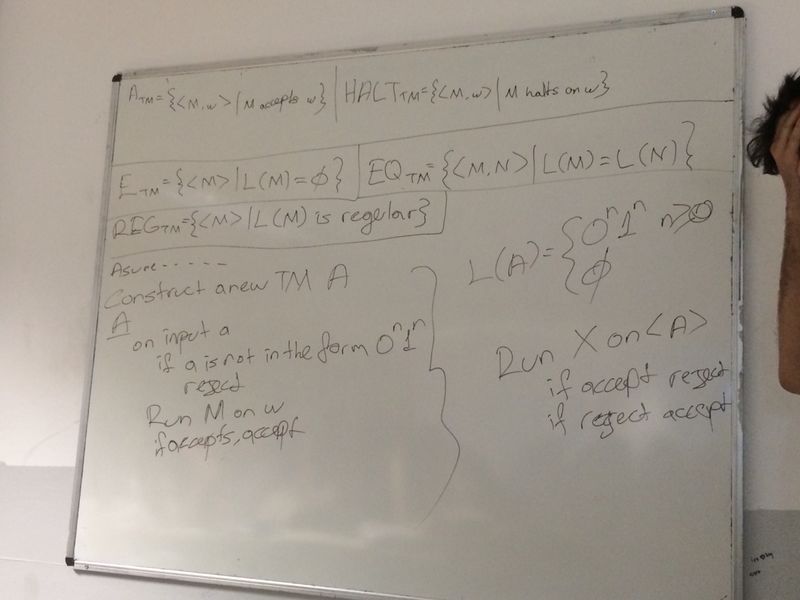 A_TM = {<M, w> | M accepts w} | HALT_TM = {<M, w> | M halts on w}
E_TM = {<M> | L(M) = ∅} EQ_TM = {<M, N> | L(M) = L(N)}
REG_TM = {<M> | L(M) is regelar}
Asure - - - - -
Construct a new TM A
A
on input a
if a is not in the form 0^n 1^n
reject
Run M on w
if accepts, accept
L(A) = { 0^n 1^n n≥0
∅
Run X on <A>
if accept reject
if reject accept